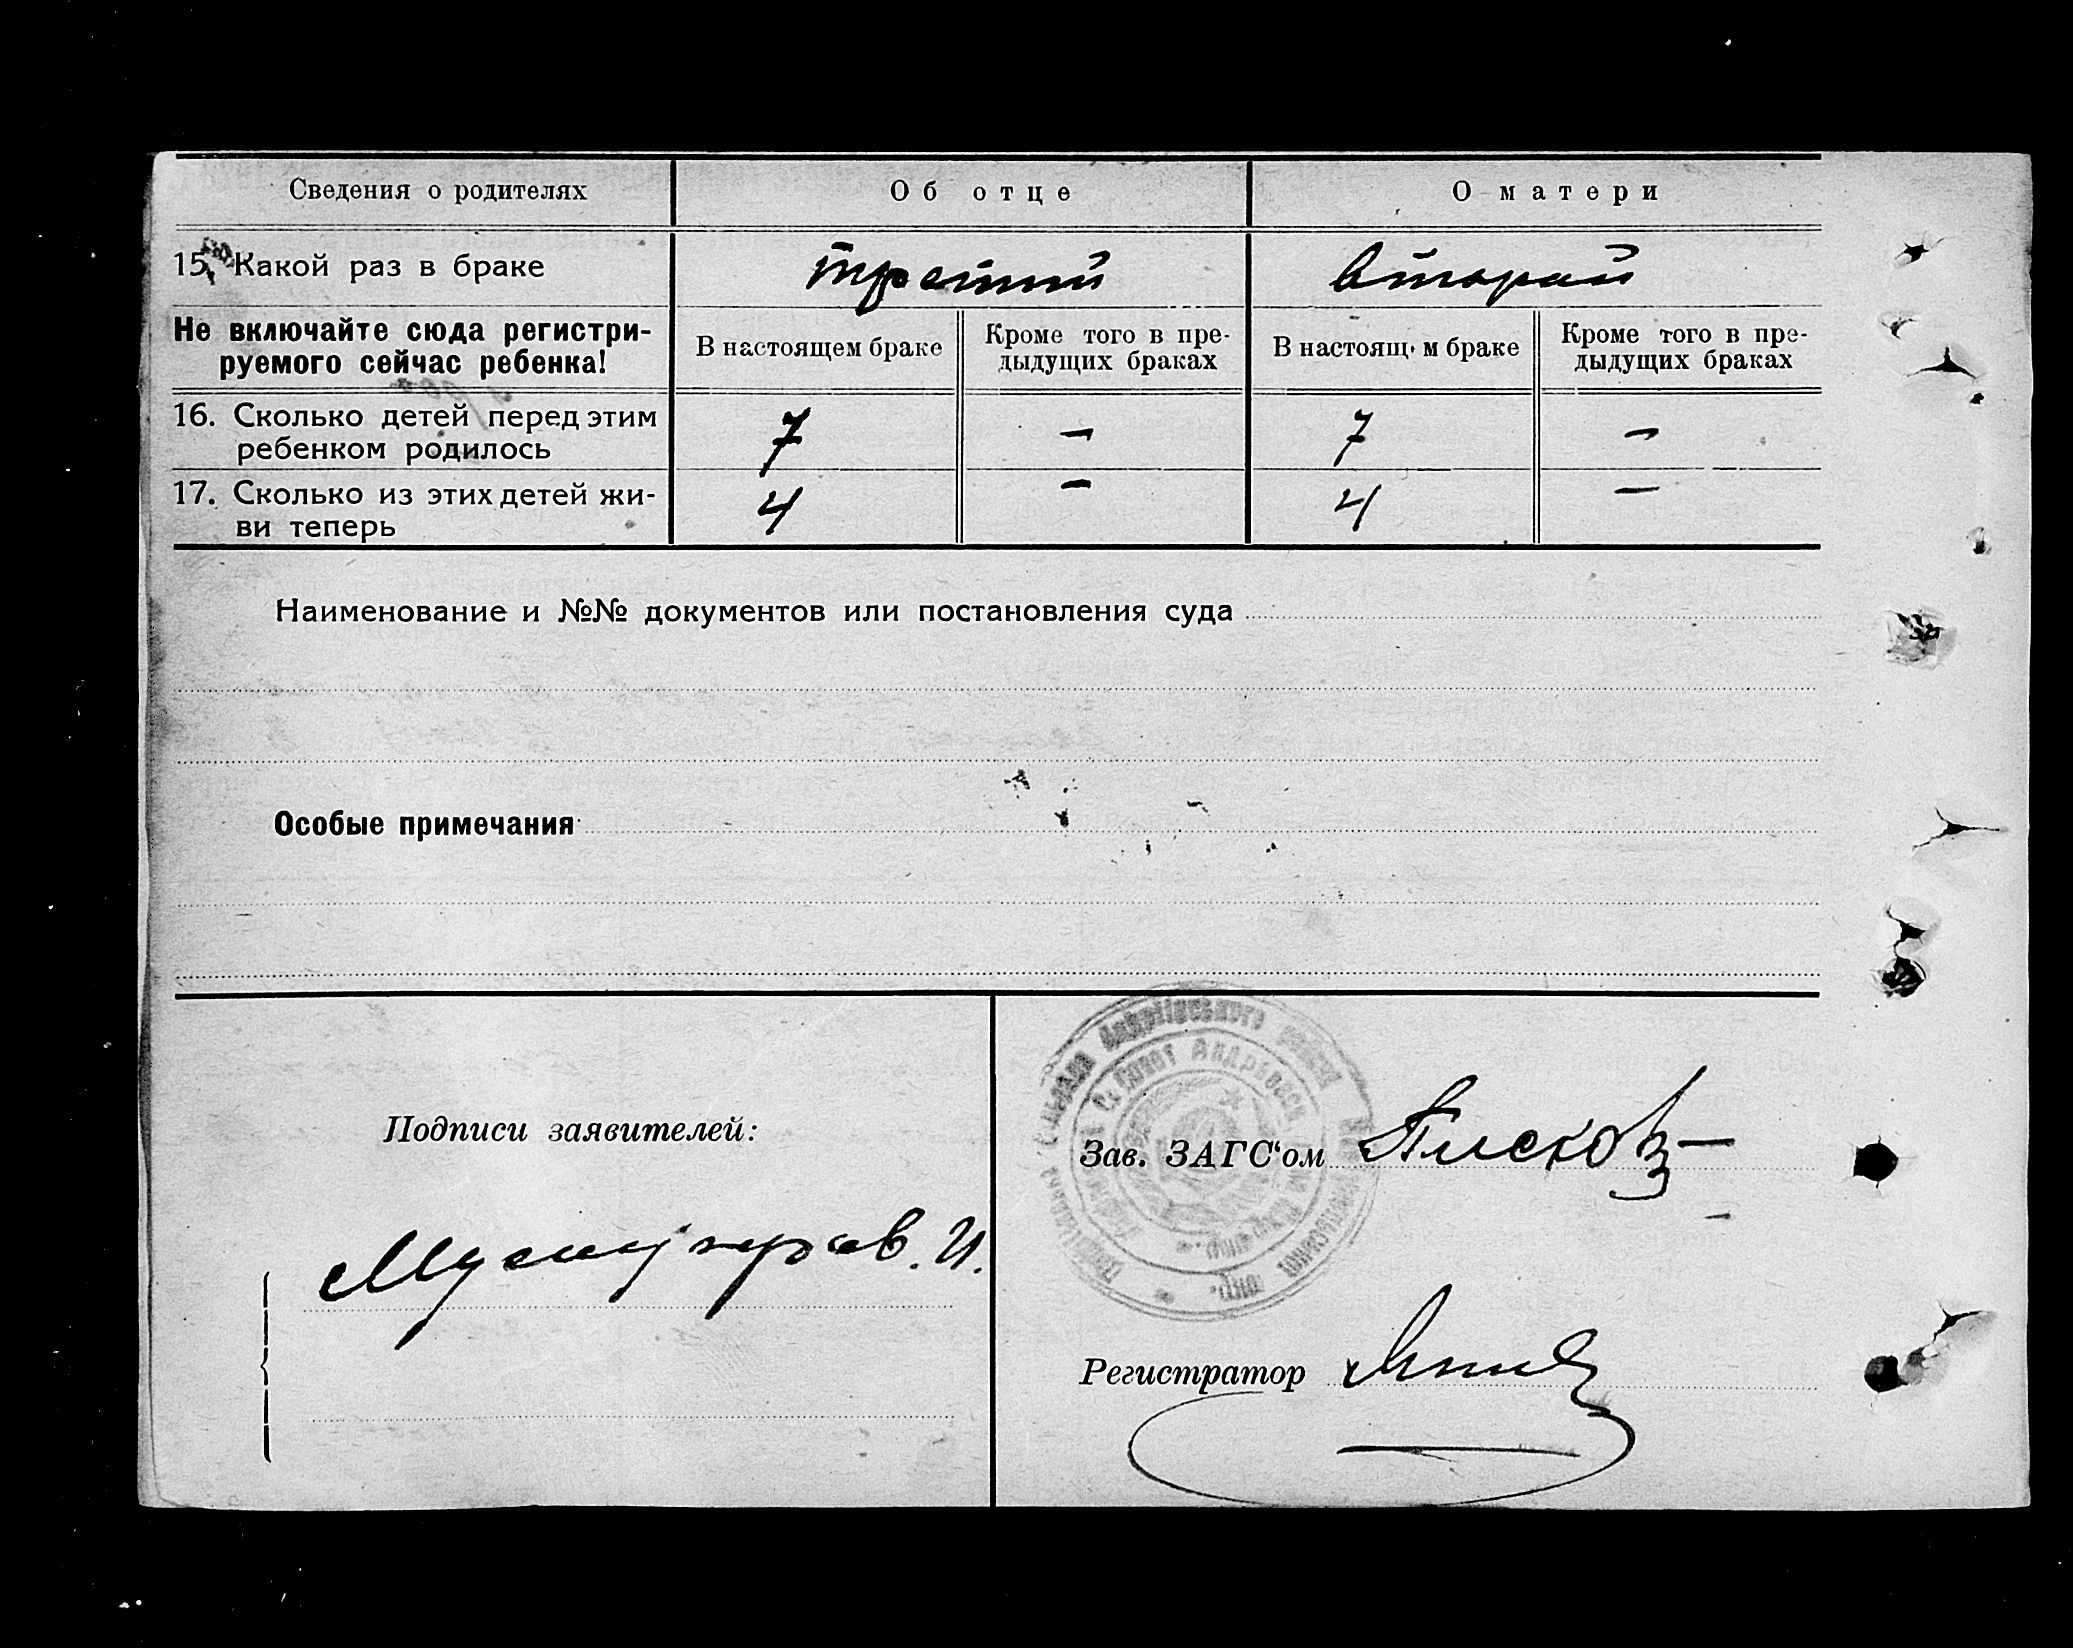 Сведения о родителях
Об отце
О матери
15. Какой раз в браке
третий
вторай
Не включайте сюда регистри-
руемого сейчас ребенка!
В настоящем браке
Кроме того в пре-
дыдущих браках
В настоящем браке
Кроме того в пре-
дыдущих браках
16. Сколько детей перед этим
ребенком родилось
7
—
7
—
17. Сколько из этих детей жи-
ви теперь
4
—
4
—
Наименование и №№ документов или постановления суда
Особые примечания
Подписи заявителей:
И.
Зав. ЗАГС'ом Писков
Регистратор